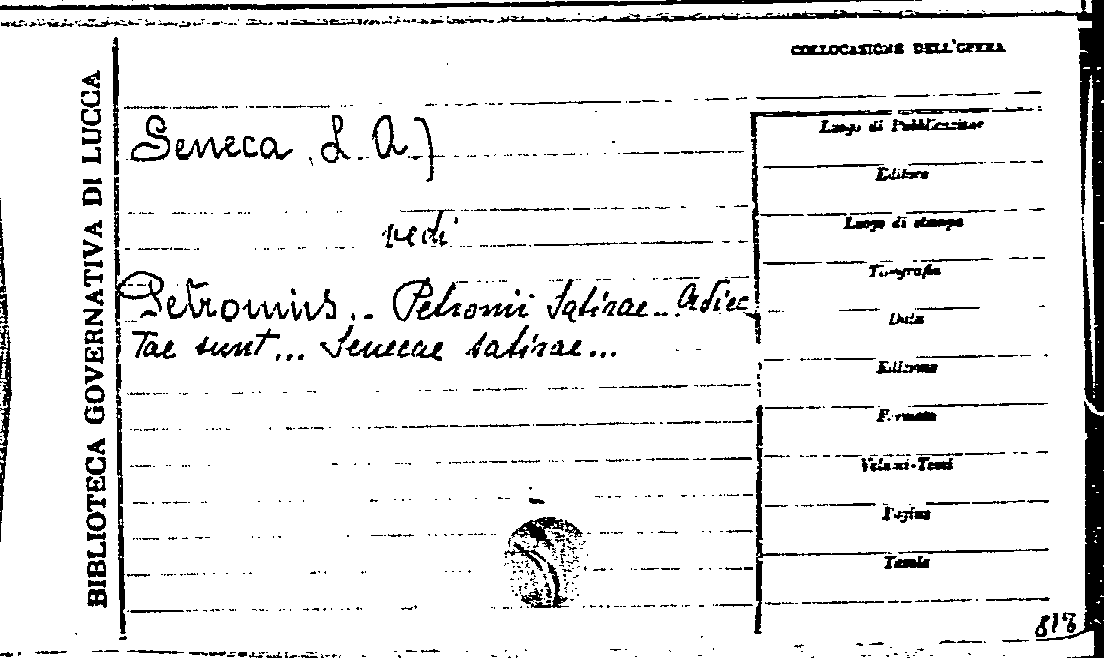 COLLOCASIONE DELL'OPERA
BIBLIOTECA GOVERNATIVA DI LUCCA
Seneca, L. A.)
vedi
Petronius.. Petronii Satirae.. Adiec
Tae sunt... Senecae satirae...
Luogo di Pubblicazione
Editore
Luogo di stampa
Tipografia
Data
Edizione
Formato
Volumi-Tomi
Pagine
Tavole